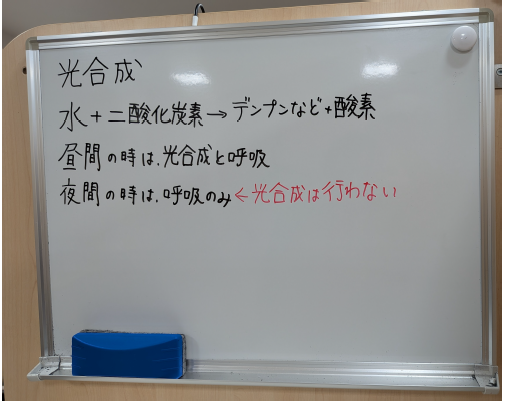 光合成
水+二酸化炭素→デンプンなど+酸素
昼間の時は、光合成と呼吸
夜間の時は、呼吸のみ←光合成は行わない